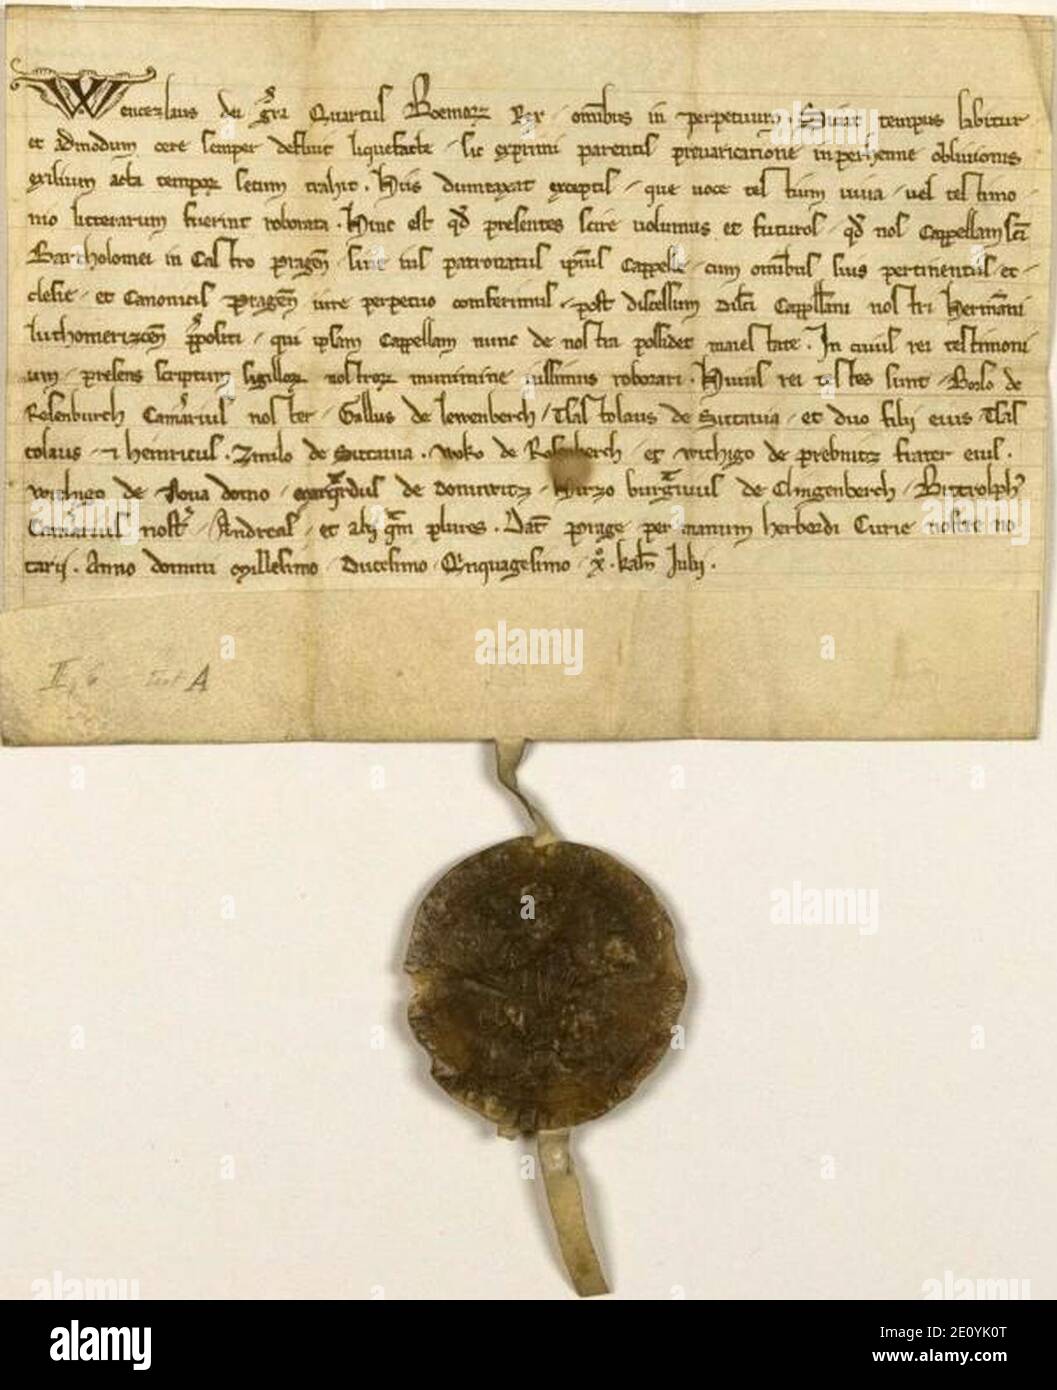 Wenczlaus dei gra Quartus Boemorz Rex . omibus in perpetuum . Sicut tempus labitur
et admodum cere semper defluit liquefacte / sic exprimi parentis prevaricatione in perhenne oblivionis
exilium acta tempor secum trahit . Hiis dumtaxat exceptis / que voce testium viva / vel testimo
nio litterarum fuerint roborata . Hinc est qd presentes scire volumus et futuros / qd nos Cappellam sci
Bartholomei in Castro pragen / sive ius patronatus ipius Cappelle / cum omibus suis pertinentiis ec
clesie / et Canonicis pragen iure perpetuo conferimus / post discessum dilci Cappllani nostri Hermani
luthomerizcen ppositi / qui ipsam Cappellam nunc de nostra possidet maiestate . In cuius rei testimoni
um / presens scriptum sigillorz nostrorz munimine iussimus roborari . Huius rei testes sunt / Borso de
Rosenburch Camarius noster / Gallus de lewenberch / Tlastolaus de Sittavia / et duo filii eius Tlas
tolaus / et heinricus . Zmilo de Sittavia . woko de Rosenberch / et wichigo de prebnitz frater eius .
wichigo de Nova domo / de / Hirzo burgvius de Clingenberch /
Camarius nost / Andreas / et alii qm plures . Dat prage per manum herbordi Curie nostre no
tarij . Anno domini Millesimo / Ducesimo / Qnquagesimo / x . kaln Julii .
II, 6 A
alamy
Image ID: 2E0YK0T
www.alamy.com